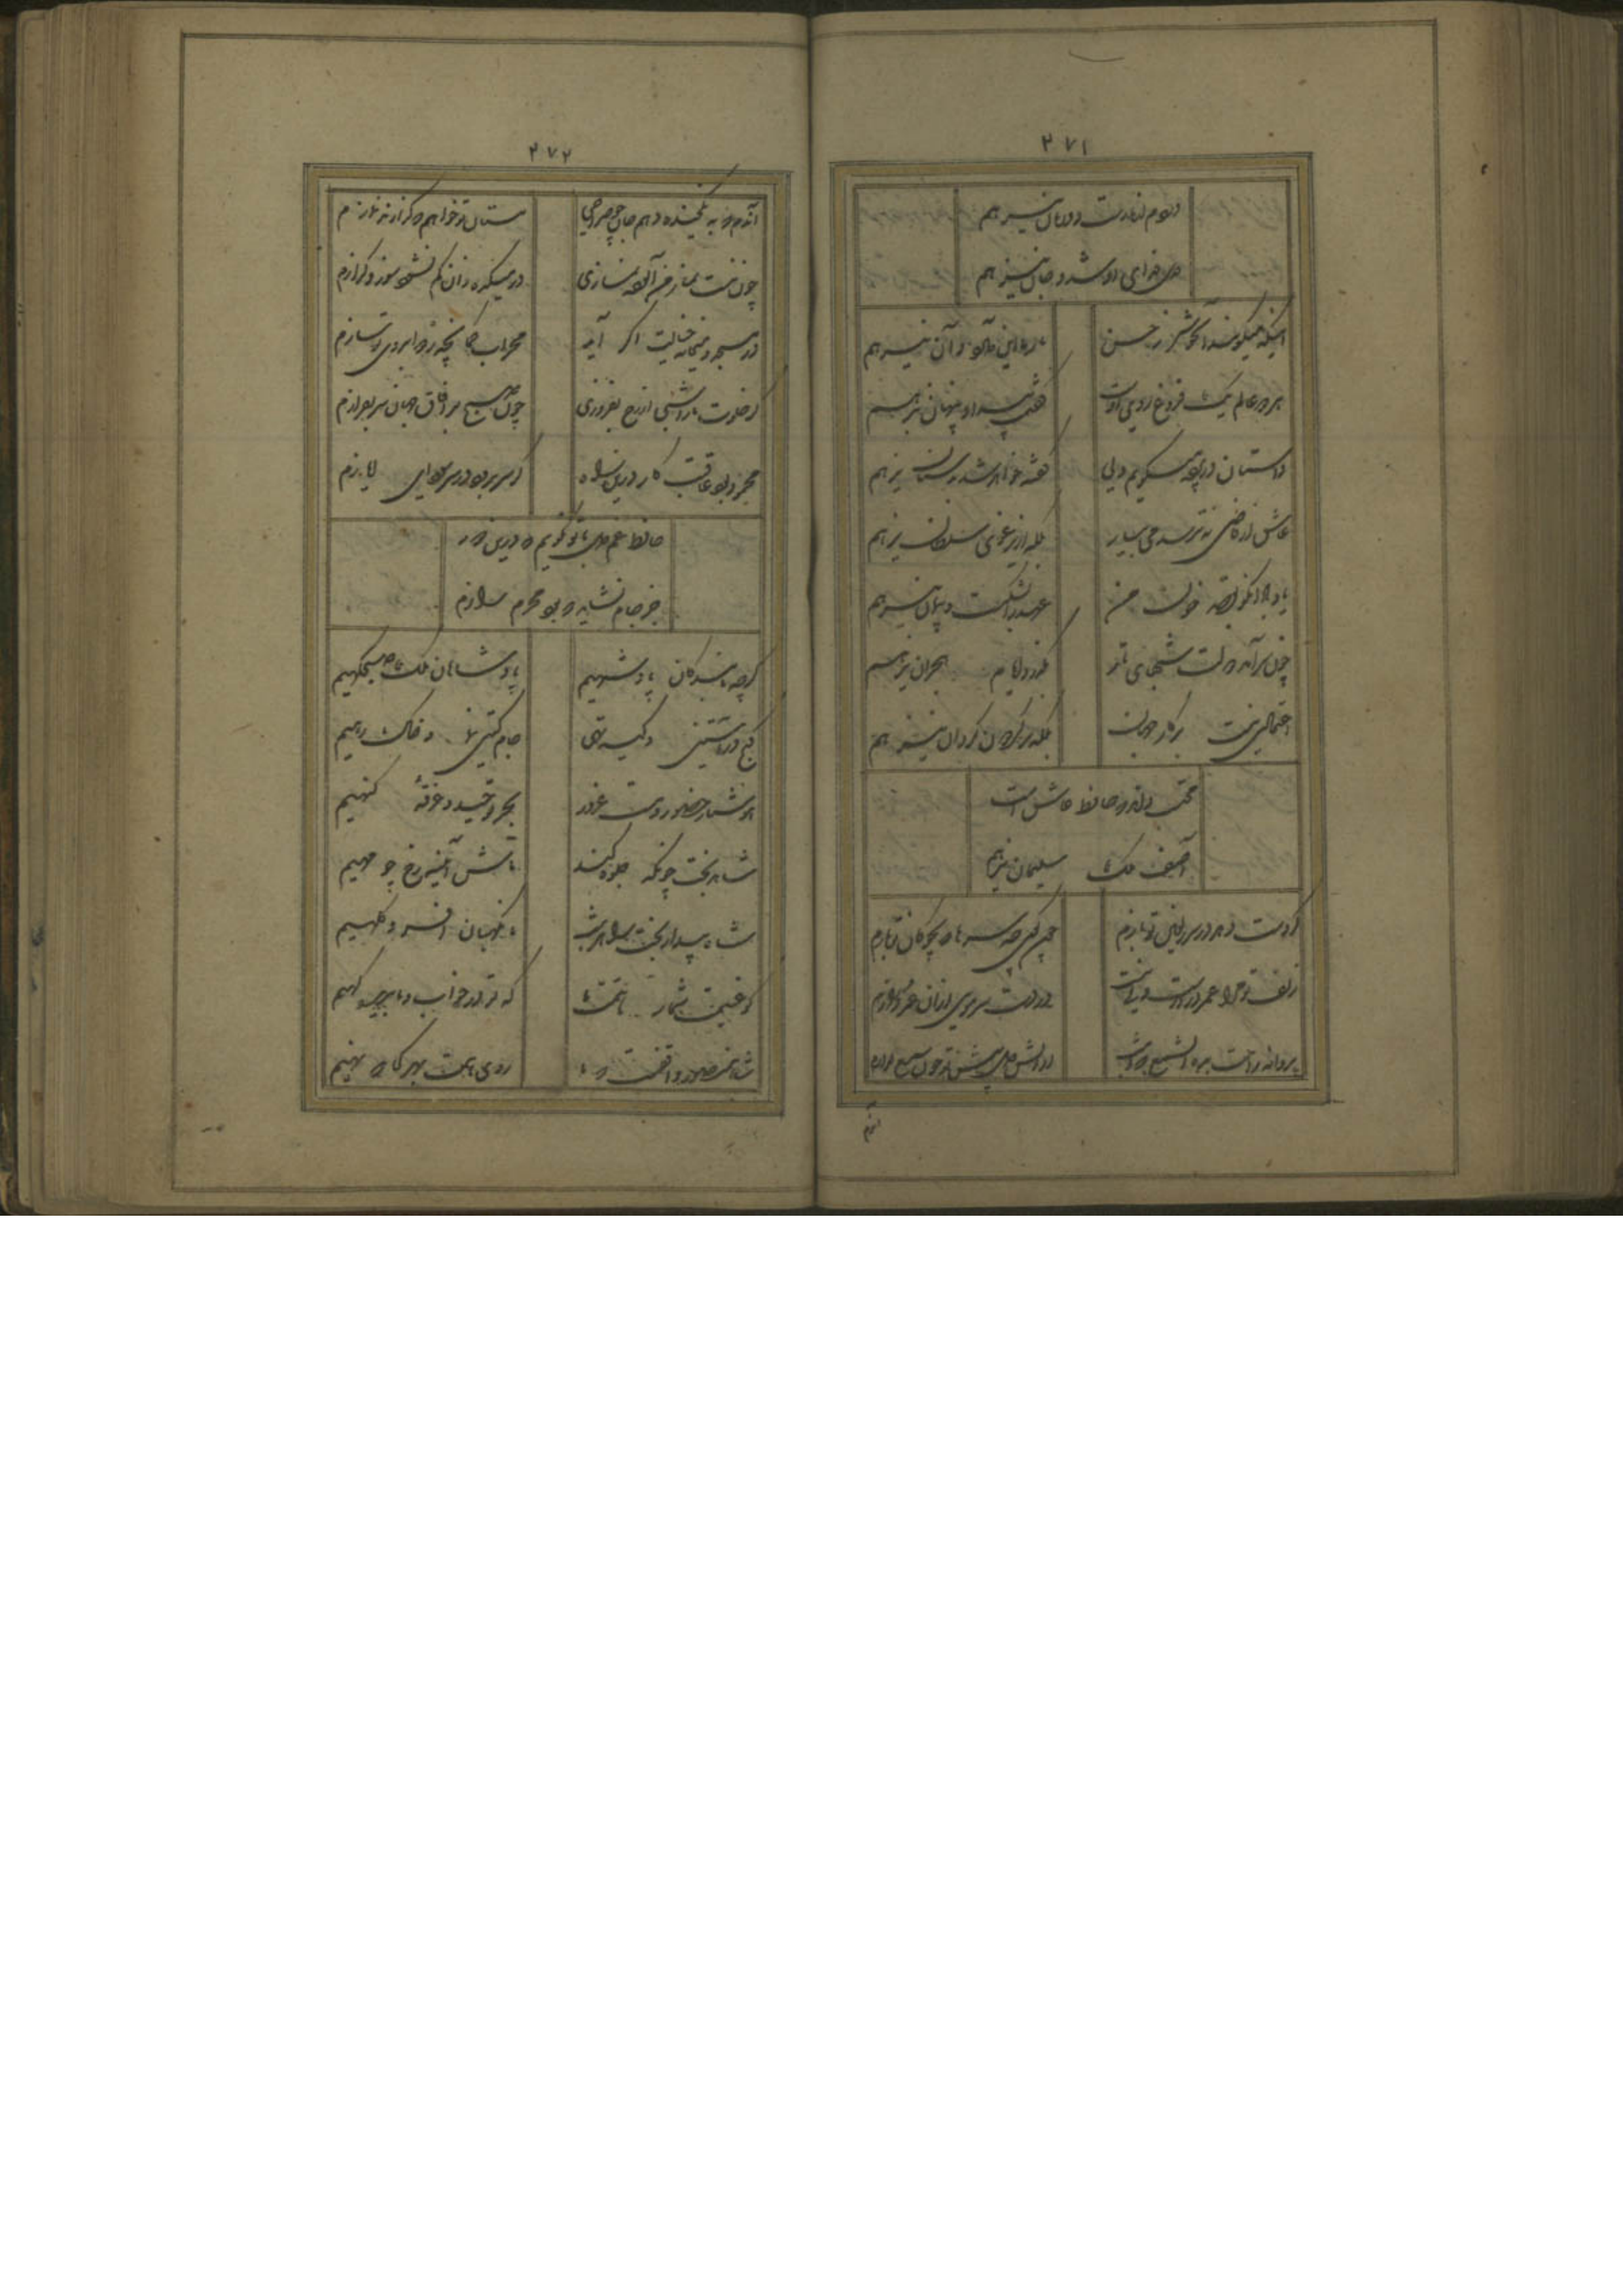 ۲۷۱
دردم از یارست و درمان نیز هم
دل فدای او شد و جان نیز هم
اینکه میگویند آن خوشتر ز حسن
یار ما این دارد و آن نیز هم
هر دو عالم یک فروغ روی اوست
گفتمت پیدا و پنهان نیز هم
داستان در پرده میگویم ولی
گفته خواهد شد بدستان نیز هم
عاشق از قاضی نترسد می بیار
بلکه از یرغوی سلطان نیز هم
یاد باد آنکو بقصد خون من
عهد را بشکست و پیمان نیز هم
چون سرآمد دولت شبهای
بگذرد ایام هجران نیز هم
اعتمادی نیست بر کار جهان
بلکه بر گردون گردان نیز هم
محتسب داند که حافظ عاشق است
آصف ملک سلیمان نیز هم
گر دست دهد در سر زلفین تو بازم
چون گوی چه سرها که بچوکان تو بازم
زلف تو مرا عمر درازست ولی نیست
در دست سر مویی از آن عمر درازم
پروانه راحت بده ای شمع که امشب
از آتش دل پیش تو چون شمع گدازم
آندم
۲۷۲
آندم که بیک خنده دهم جان چو صراحی
مستان تو خواهم که گزارند نمازم
چون نیست نماز من آلوده نمازی
در میکده زان کم نشود سوز و گدازم
در مسجد و میخانه خیالت اگر آید
محراب و کمانچه ز دو ابروی تو سازم
گر خلوت ما را شبی از رخ بفروزی
چون صبح بر آفاق جهان سر بفرازم
محمود بود عاقبت کار درین راه
گر سر برود در سر سودای ایازم
حافظ غم دل با که گویم که درین دور
جز جام نشاید که بود محرم رازم
گرچه ما بندگان پادشهیم
پادشاهان ملک صبحگهیم
گنج در آستین و کیسه تهی
جام گیتی نما و خاک رهیم
هوشیار حضور و مست غرور
بحر توحید و غرقه گنهیم
شاهد بخت چونکه جلوه کند
ماش آیینه رخ چو مهیم
شاه بیدار بخت را هر شب
ما نگهبان افسر و کلهیم
گو غنیمت شمار همت ما
که تو در خواب و ما بدیده گهیم
شاه منصور واقفست که ما
روی همت بهر کجا که نهیم